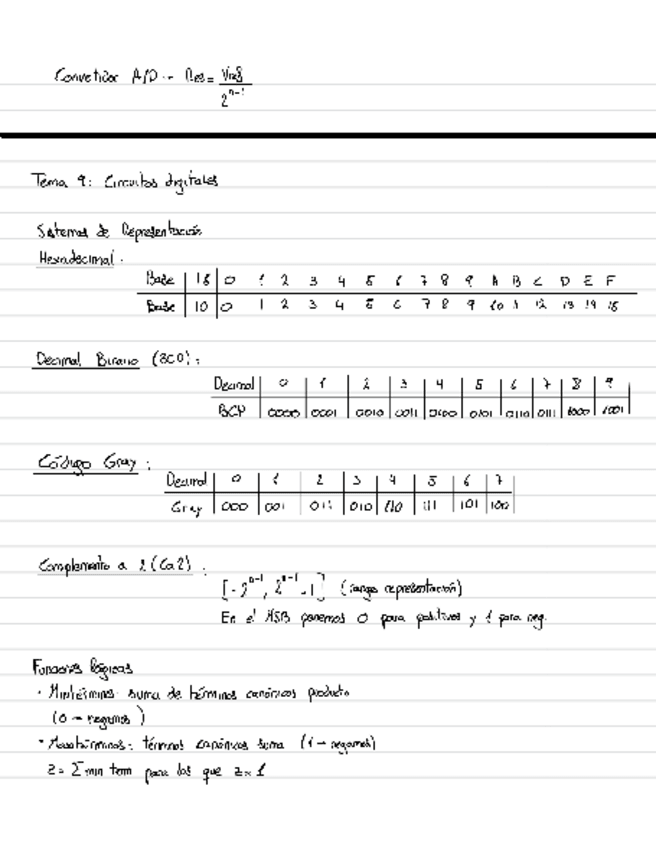 Convertidor A/D → Res = Vref / 2^n-1
Tema 9: Circuitos digitales
Sistemas de Representación
Hexadecimal.
Base 16 0 1 2 3 4 5 6 7 8 9 A B C D E F
Base 10 0 1 2 3 4 5 6 7 8 9 10 11 12 13 14 15
Decimal Binario (BCD):
Decimal 0 1 2 3 4 5 6 7 8 9
BCD 0000 0001 0010 0011 0100 0101 0110 0111 1000 1001
Código Gray:
Decimal 0 1 2 3 4 5 6 7
Gray 000 001 011 010 110 111 101 100
Complemento a 2 (Ca2):
[-2^n-1, 2^n-1 -1] (rango representación)
En el MSB ponemos 0 para positivos y 1 para neg.
Funciones lógicas
· Mintérminos: suma de términos canónicos producto
(0 → negamos)
· Maxtérminos: términos canónicos suma (1 → negamos)
Z = Σ min term para los que z = 1